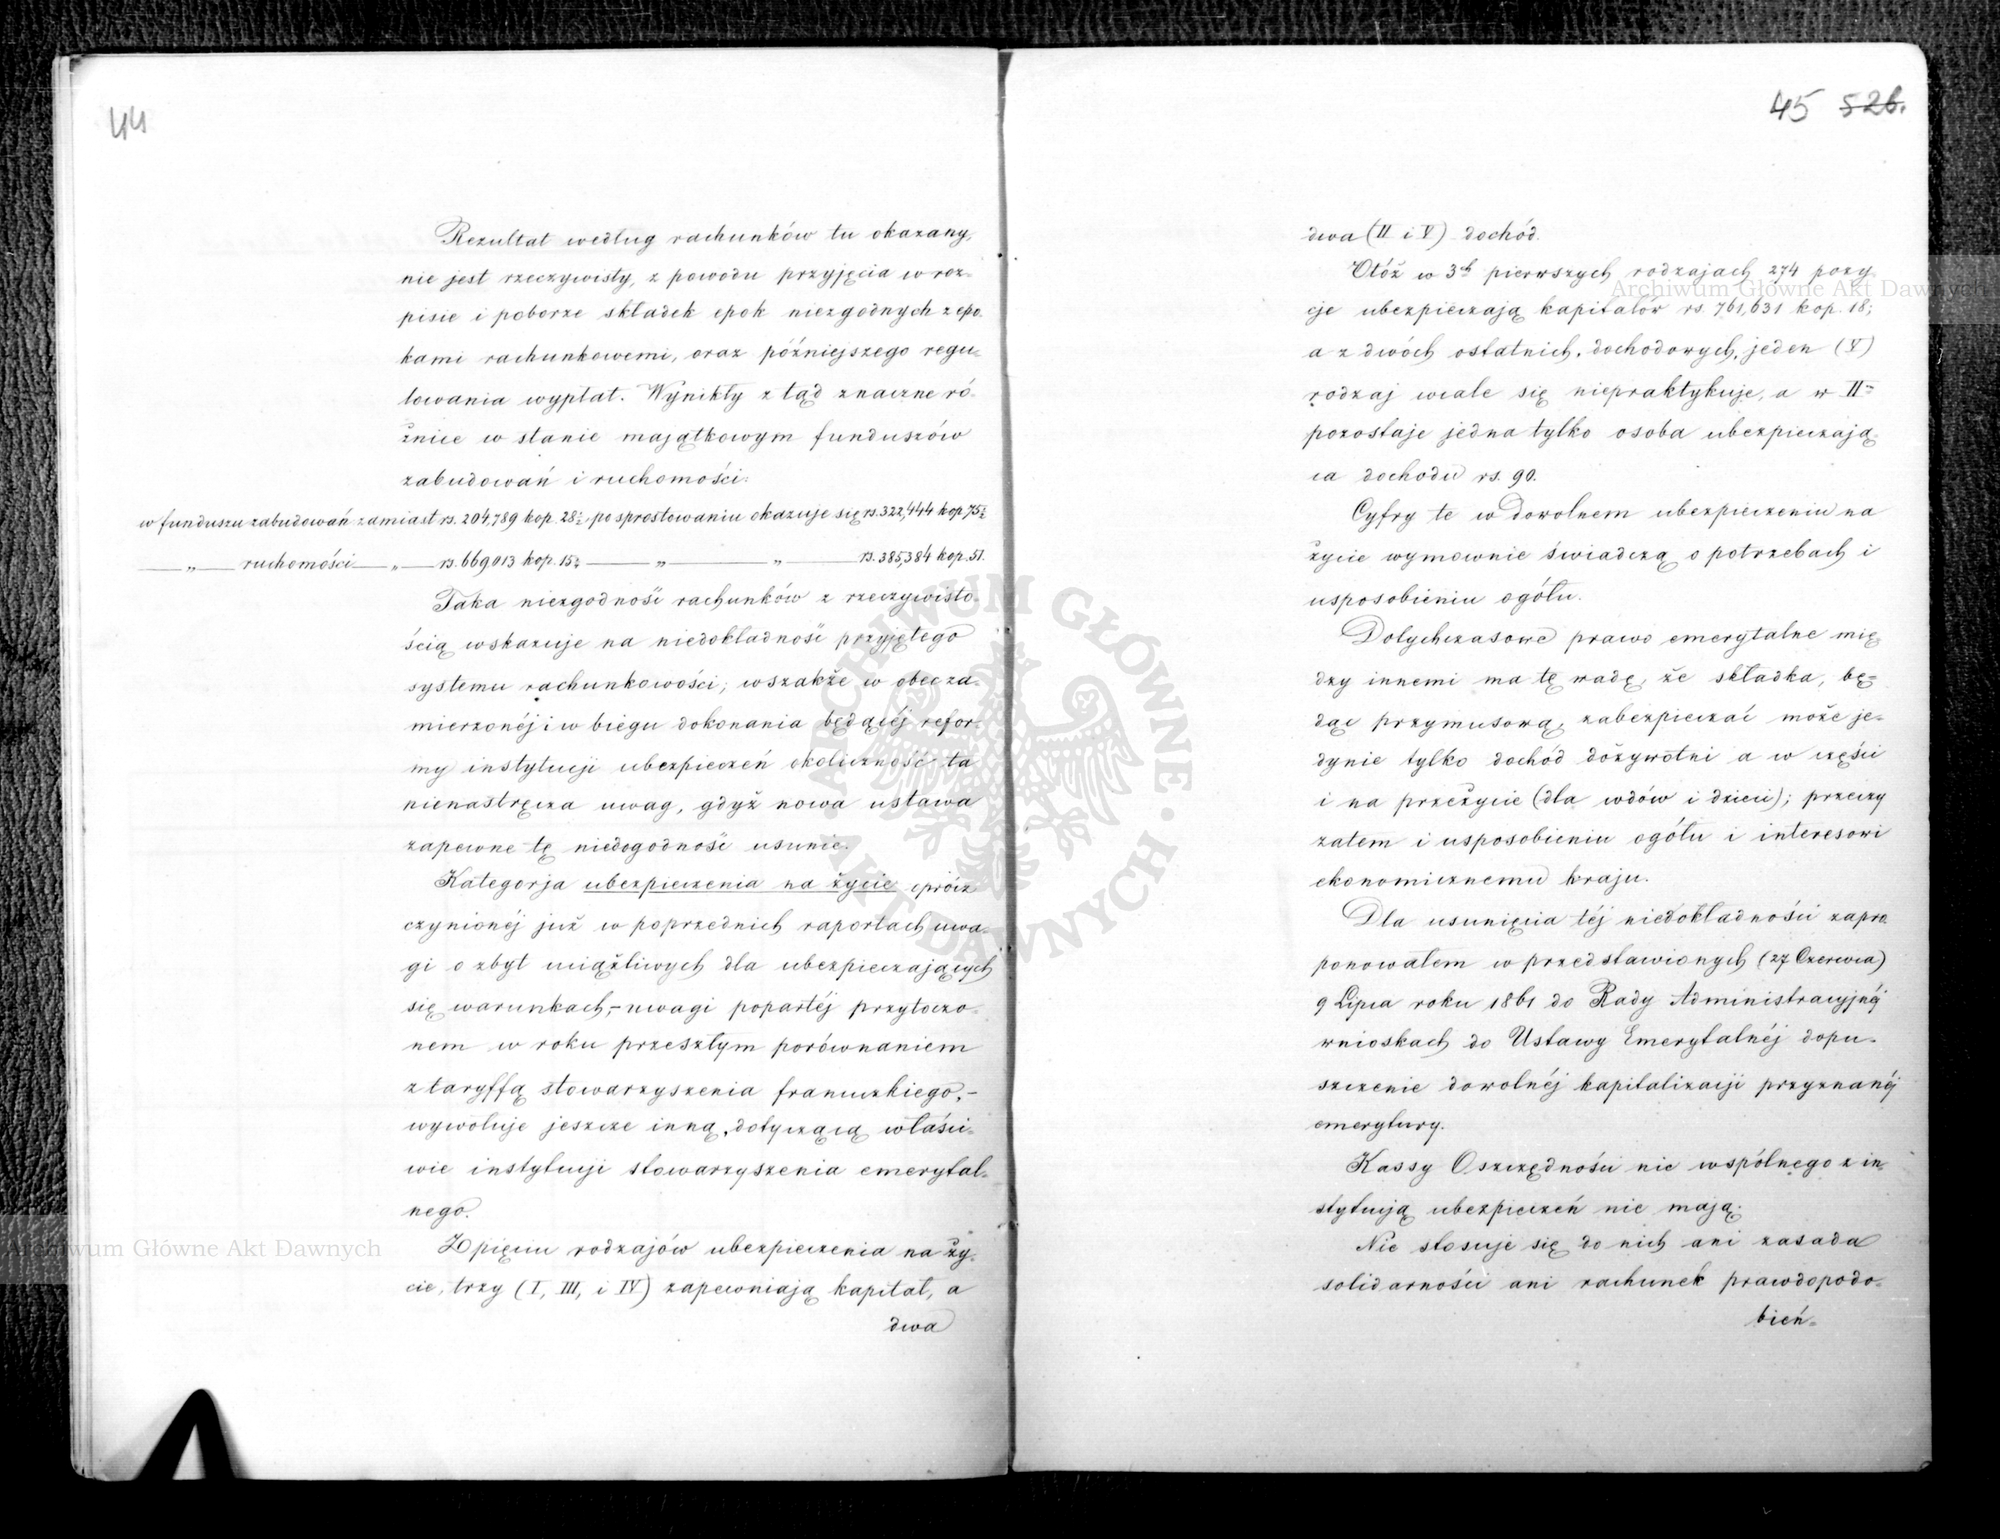 44
Rezultat według rachunków tu okazany,
nie jest rzeczywisty, z powodu przyjęcia w roz-
pisie i poborze składek epok niezgodnych z epo-
kami rachunkowemi, oraz późniejszego regu-
lowania wypłat. Wynikły z tąd znaczne ró-
żnice w stanie majątkowym funduszów
zabudowań i ruchomości:
w funduszu zabudowań zamiast rs. 204,789 kop. 28½, po sprostowaniu okazuje się rs. 322,444 kop. 75½
„ ruchomości „ rs. 669,013 kop. 15½ „ „ rs. 385,384 kop. 51.
Taka niezgodność rachunków z rzeczywisto
ścią wskazuje na niedokładność przyjętego
systemu rachunkowości; wszakże w obec za-
mierzonéj i w biegu dokonania będącéj refor-
my instytucji ubezpieczeń okoliczność ta
nienastręcza uwag, gdyż nowa ustawa
zapewne tę niedogodność usunie.
Kategorja ubezpieczenia na życie oprócz
czynionéj już w poprzednich raportach uwa-
gi o zbyt uciążliwych dla ubezpieczających
się warunkach,- uwagi popartéj przytoczo-
nem w roku przeszłym porównaniem
z taryffą stowarzyszenia francuzkiego,-
wywołuje jeszcze inną, dotyczącą właści-
wie instytucji stowarzyszenia emerytal-
nego.
Z pięciu rodzajów ubezpieczenia na ży-
cie, trzy (I, III, i IV) zapewniają kapitał, a
dwa
45 526.
dwa (II i V) dochód.
Otóż w 3ch pierwszych rodzajach 274 pozy
cje ubezpieczają kapitałów rs. 761,631 kop. 18;
a z dwóch ostatnich, dochodowych, jeden (V)
rodzaj wcale się niepraktykuje, a w II=
pozostaje jedna tylko osoba ubezpieczają-
ca dochodu rs. 90.
Cyfry te w dowolnem ubezpieczeniu na
życie wymownie świadczą o potrzebach i
usposobieniu ogółu.
Dotychczasowe prawo emerytalne mię
dzy innemi ma tę wadę, że składka, bę-
dąc przymusową, zabezpieczać może je-
dynie tylko dochód dożywotni a w części
i na przeżycie (dla wdów i dzieci); przeczy
zatem i usposobieniu ogółu i interesowi
ekonomicznemu kraju.
Dla usunięcia téj niedokładności zapro
ponowałem w przedstawionych (27 Czerwca)
9 Lipca roku 1861 do Rady Administracyjnéj
wnioskach do Ustawy Emerytalnéj dopu-
szczenie dowolnéj kapitalizacji przyznanéj
emerytury.
Kassy Oszczędności nic wspólnego z in-
stytucją ubezpieczeń nie mają.
Nie stosuje się do nich ani zasada
solidarności ani rachunek prawdopodo-
bień-
Archiwum Główne Akt Dawnych
Archiwum Główne Akt Dawnych
ARCHIWUM GŁÓWNE · AKT DAWNYCH ·